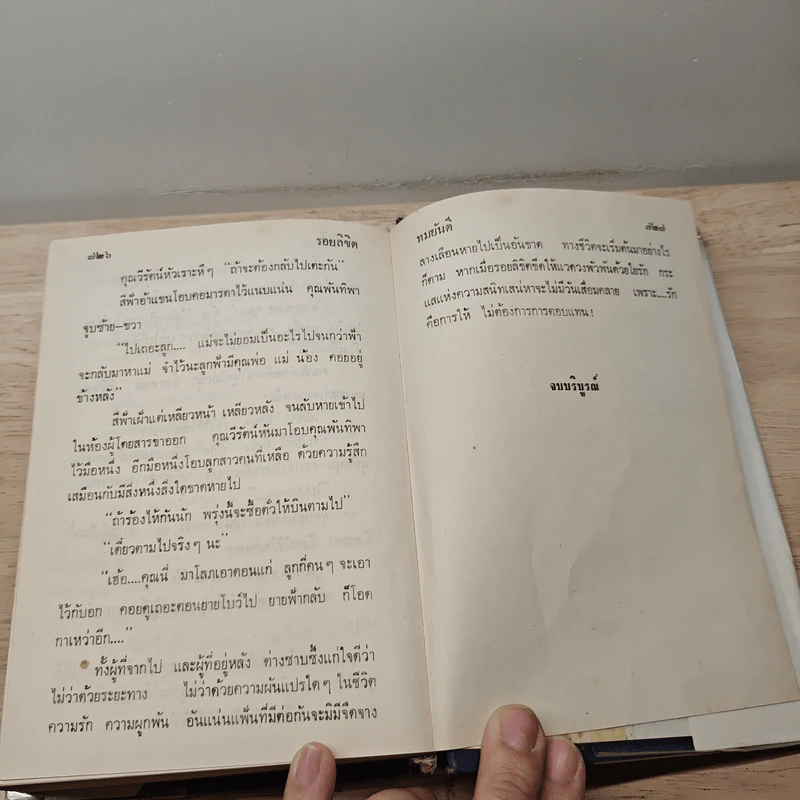 ๗๒๖ รอยลิขิต
คุณวีรัตน์หัวเราะหึๆ “ถ้าจะต้องกลับไปเตะกัน”
สีฟ้าอ้าแขนโอบคอมารดาไว้แนบแน่น คุณพันทิพา
จูบซ้าย–ขวา
“ไปเถอะลูก.... แม่จะไม่ยอมเป็นอะไรไปจนกว่าฟ้า
จะกลับมาหาแม่ จำไว้นะลูกฟ้ามีคุณพ่อ แม่ น้อง คอยอยู่
ข้างหลัง”
สีฟ้าเฝ้าแต่เหลียวหน้า เหลียวหลัง จนลับหายเข้าไป
ในห้องผู้โดยสารขาออก คุณวีรัตน์หันมาโอบคุณพันทิพา
ไว้มือหนึ่ง อีกมือหนึ่งโอบลูกสาวคนที่เหลือ ด้วยความรู้สึก
เสมือนกับมีสิ่งหนึ่งสิ่งใดขาดหายไป
“ถ้าร้องไห้กันนัก พรุ่งนี้จะซื้อตั๋วให้บินตามไป”
“เดี๋ยวตามไปจริงๆ นะ”
“เฮ้อ....คุณนี่ มาโลภเอาตอนแก่ ลูกกี่คนๆ จะเอา
ไว้กับอก คอยดูเถอะตอนยายโบว์ไป ยายฟ้ากลับ ก็โอด
กาเหว่าอีก....”
ทั้งผู้ที่จากไป และผู้ที่อยู่หลัง ต่างซาบซึ้งแก่ใจดีว่า
ไม่ว่าด้วยระยะทาง ไม่ว่าด้วยความผันแปรใดๆ ในชีวิต
ความรัก ความผูกพัน อันแน่นแฟ้นที่มีต่อกันจะมิมีจืดจาง
ทมยันตี ๗๒๗
ลางเลือนหายไปเป็นอันขาด ทางชีวิตจะเริ่มต้นมาอย่างไร
ก็ตาม หากเมื่อรอยลิขิตขีดให้แวดวงพัวพันด้วยใยรัก กระ
แสแห่งความสนิทเสน่หาจะไม่มีวันเสื่อมคลาย เพราะ....รัก
คือการให้ ไม่ต้องการการตอบแทน!
จบบริบูรณ์